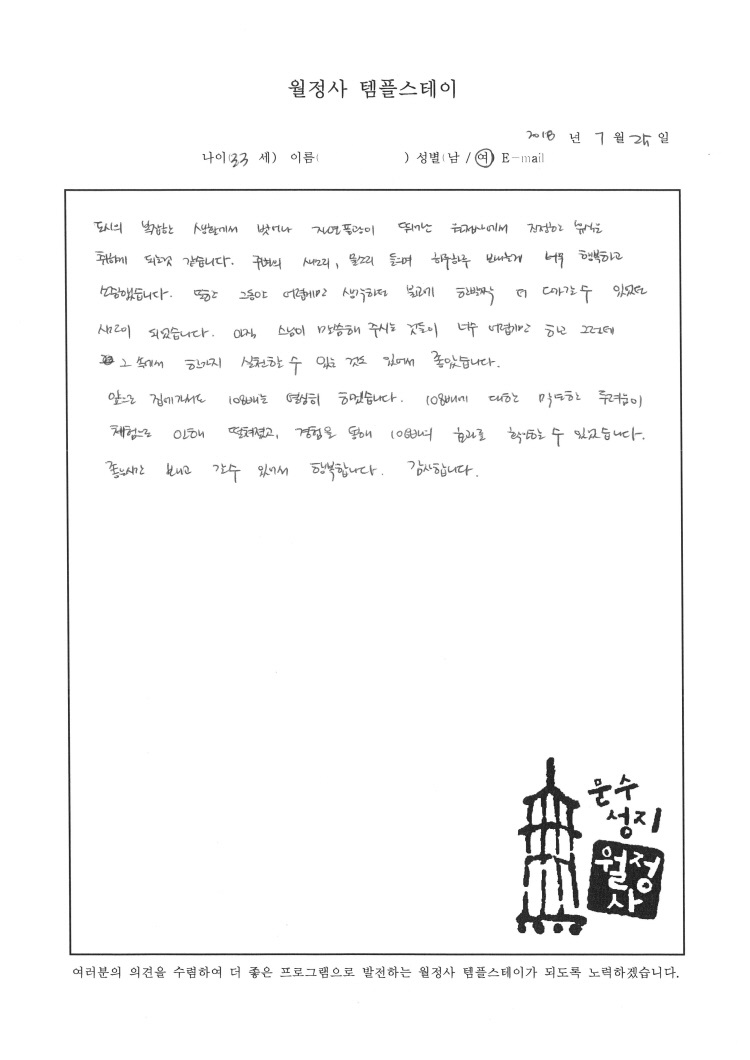 월정사 템플스테이
2018 년 7 월 25 일
나이(33 세) 이름( ) 성별(남 / 여) E-mail
도시의 복잡한 생활에서 벗어나 자연풍광이 뛰어난 월정사에서 진정한 휴식을
취하게 되는것 같습니다. 주변의 새소리, 물소리 들으며 하루하루 보내는게 너무 행복하고
소중했습니다. 또한 그동안 어렵게만 생각하던 불교에 한발짝 더 다가갈 수 있었던
시간이 되었습니다. 아직, 스님이 말씀해 주시는 것들이 너무 어렵게만 하고 그런데
그 속에서 한가지 실천할 수 있는 것도 있어서 좋았습니다.
앞으로 집에가서도 108배는 열심히 하겠습니다. 108배에 대한 막연한 두려움이
체험으로 인해 떨쳐졌고, 경험을 통해 108배의 효과를 확인할 수 있었습니다.
좋은시간 보내고 갈수 있어서 행복합니다. 감사합니다.
문수
성지
월정
사
여러분의 의견을 수렴하여 더 좋은 프로그램으로 발전하는 월정사 템플스테이가 되도록 노력하겠습니다.